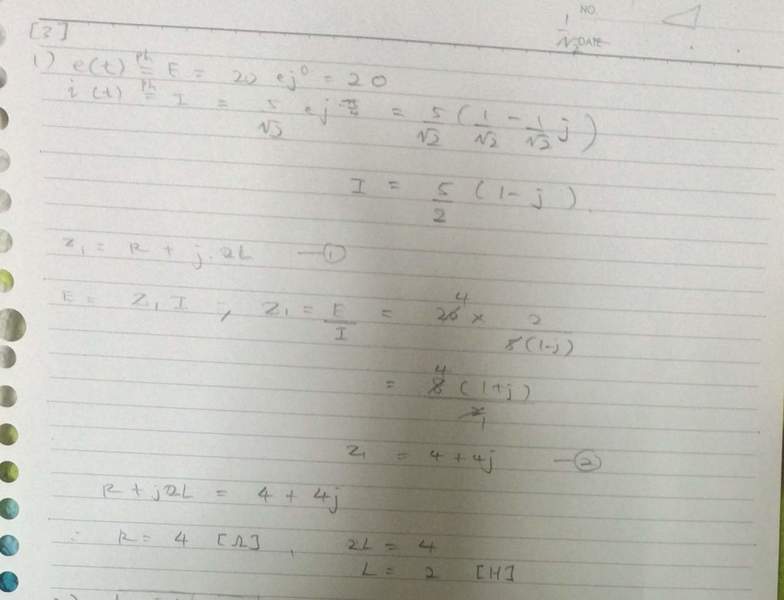 NO.
DATE
[3]
1) e(t) ph= E = 20 ej⁰ = 20
i(t) ph= I = 5/√2 ej-π/4 = 5/√2 (1/√2 - 1/√2 j)
I = 5/2 (1-j).
Z₁ = R + j.2L —①
E = Z₁ I , Z₁ = E/I = 20 4 × 2/5(1-j)
= 8 4 (1+j)/2 1
Z₁ = 4+4j —②
R + j2L = 4 + 4j
∴ R = 4 [Ω] , 2L = 4
L = 2 [H]